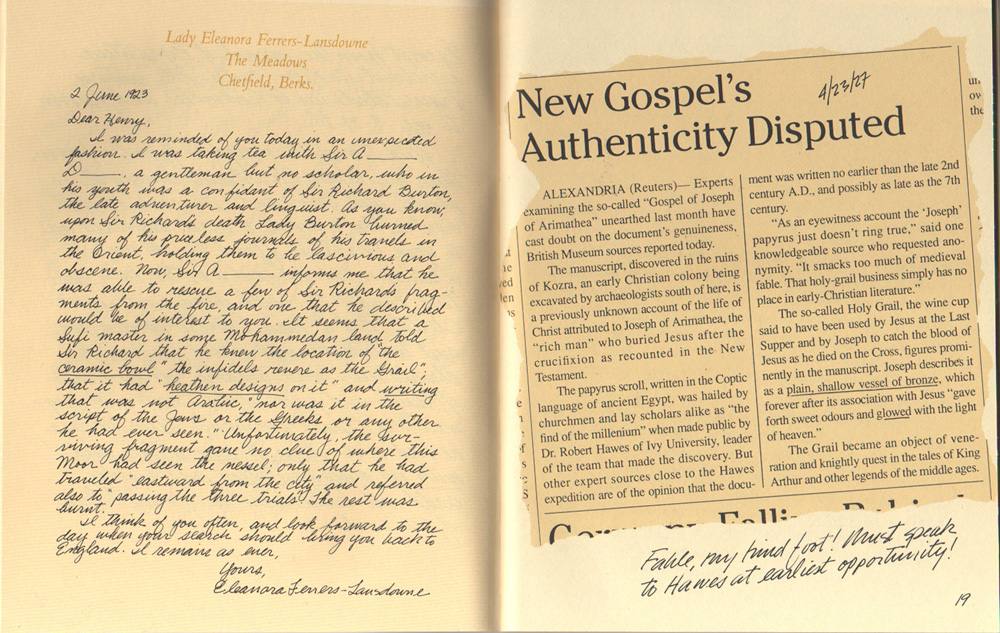 Lady Eleanora Ferrers-Lansdowne
The Meadows
Chetfield, Berks.
2 June 1923
Dear Henry,
I was reminded of you today in an unexpected
fashion. I was taking tea with Sir A____
D____, a gentleman but no scholar, who in
his youth was a confidant of Sir Richard Burton,
the late adventurer and linguist. As you know,
upon Sir Richard's death Lady Burton burned
many of his priceless journals of his travels in
the Orient, holding them to be lascivious and
obscene. Now, Sir A____ informs me that he
was able to rescue a few of Sir Richard's frag-
ments from the fire, and one that he described
would be of interest to you. It seems that a
Sufi master in some Mohammedan land told
Sir Richard that he knew the location of "the
ceramic bowl" the infidels revere as the Grail";
that it had "heathen designs on it" and writing
that was not Arabic, "nor was it in the
script of the Jews or the Greeks or any other
he had ever seen." Unfortunately, the sur-
viving fragment gave no clue of where this
Moor had seen the vessel; only that he had
traveled "eastward from the city" and referred
also to "passing the three trials". The rest was
burnt.
I think of you often, and look forward to the
day when your search should bring you back to
England. I remain as ever,
Yours,
Eleanora Ferrers-Lansdowne
New Gospel's
Authenticity Disputed
4/23/27
ALEXANDRIA (Reuters)— Experts
examining the so-called "Gospel of Joseph
of Arimathea" unearthed last month have
cast doubt on the document's genuineness,
British Museum sources reported today.
The manuscript, discovered in the ruins
of Kozra, an early Christian colony being
excavated by archaeologists south of here, is
a previously unknown account of the life of
Christ attributed to Joseph of Arimathea, the
"rich man" who buried Jesus after the
crucifixion as recounted in the New
Testament.
The papyrus scroll, written in the Coptic
language of ancient Egypt, was hailed by
churchmen and lay scholars alike as "the
find of the millenium" when made public by
Dr. Robert Hawes of Ivy University, leader
of the team that made the discovery. But
other expert sources close to the Hawes
expedition are of the opinion that the docu-
ment was written no earlier than the late 2nd
century A.D., and possibly as late as the 7th
century.
"As an eyewitness account the 'Joseph'
papyrus just doesn't ring true," said one
knowledgeable source who requested ano-
nymity. "It smacks too much of medieval
fable. That holy-grail business simply has no
place in early-Christian literature."
The so-called Holy Grail, the wine cup
said to have been used by Jesus at the Last
Supper and by Joseph to catch the blood of
Jesus as he died on the Cross, figures promi-
nently in the manuscript. Joseph describes it
as a plain, shallow vessel of bronze, which
forever after its association with Jesus "gave
forth sweet odours and glowed with the light
of heaven."
The Grail became an object of vene-
ration and knightly quest in the tales of King
Arthur and other legends of the middle ages.
Fable, my hind foot! Must speak
to Hawes at earliest opportunity!
19